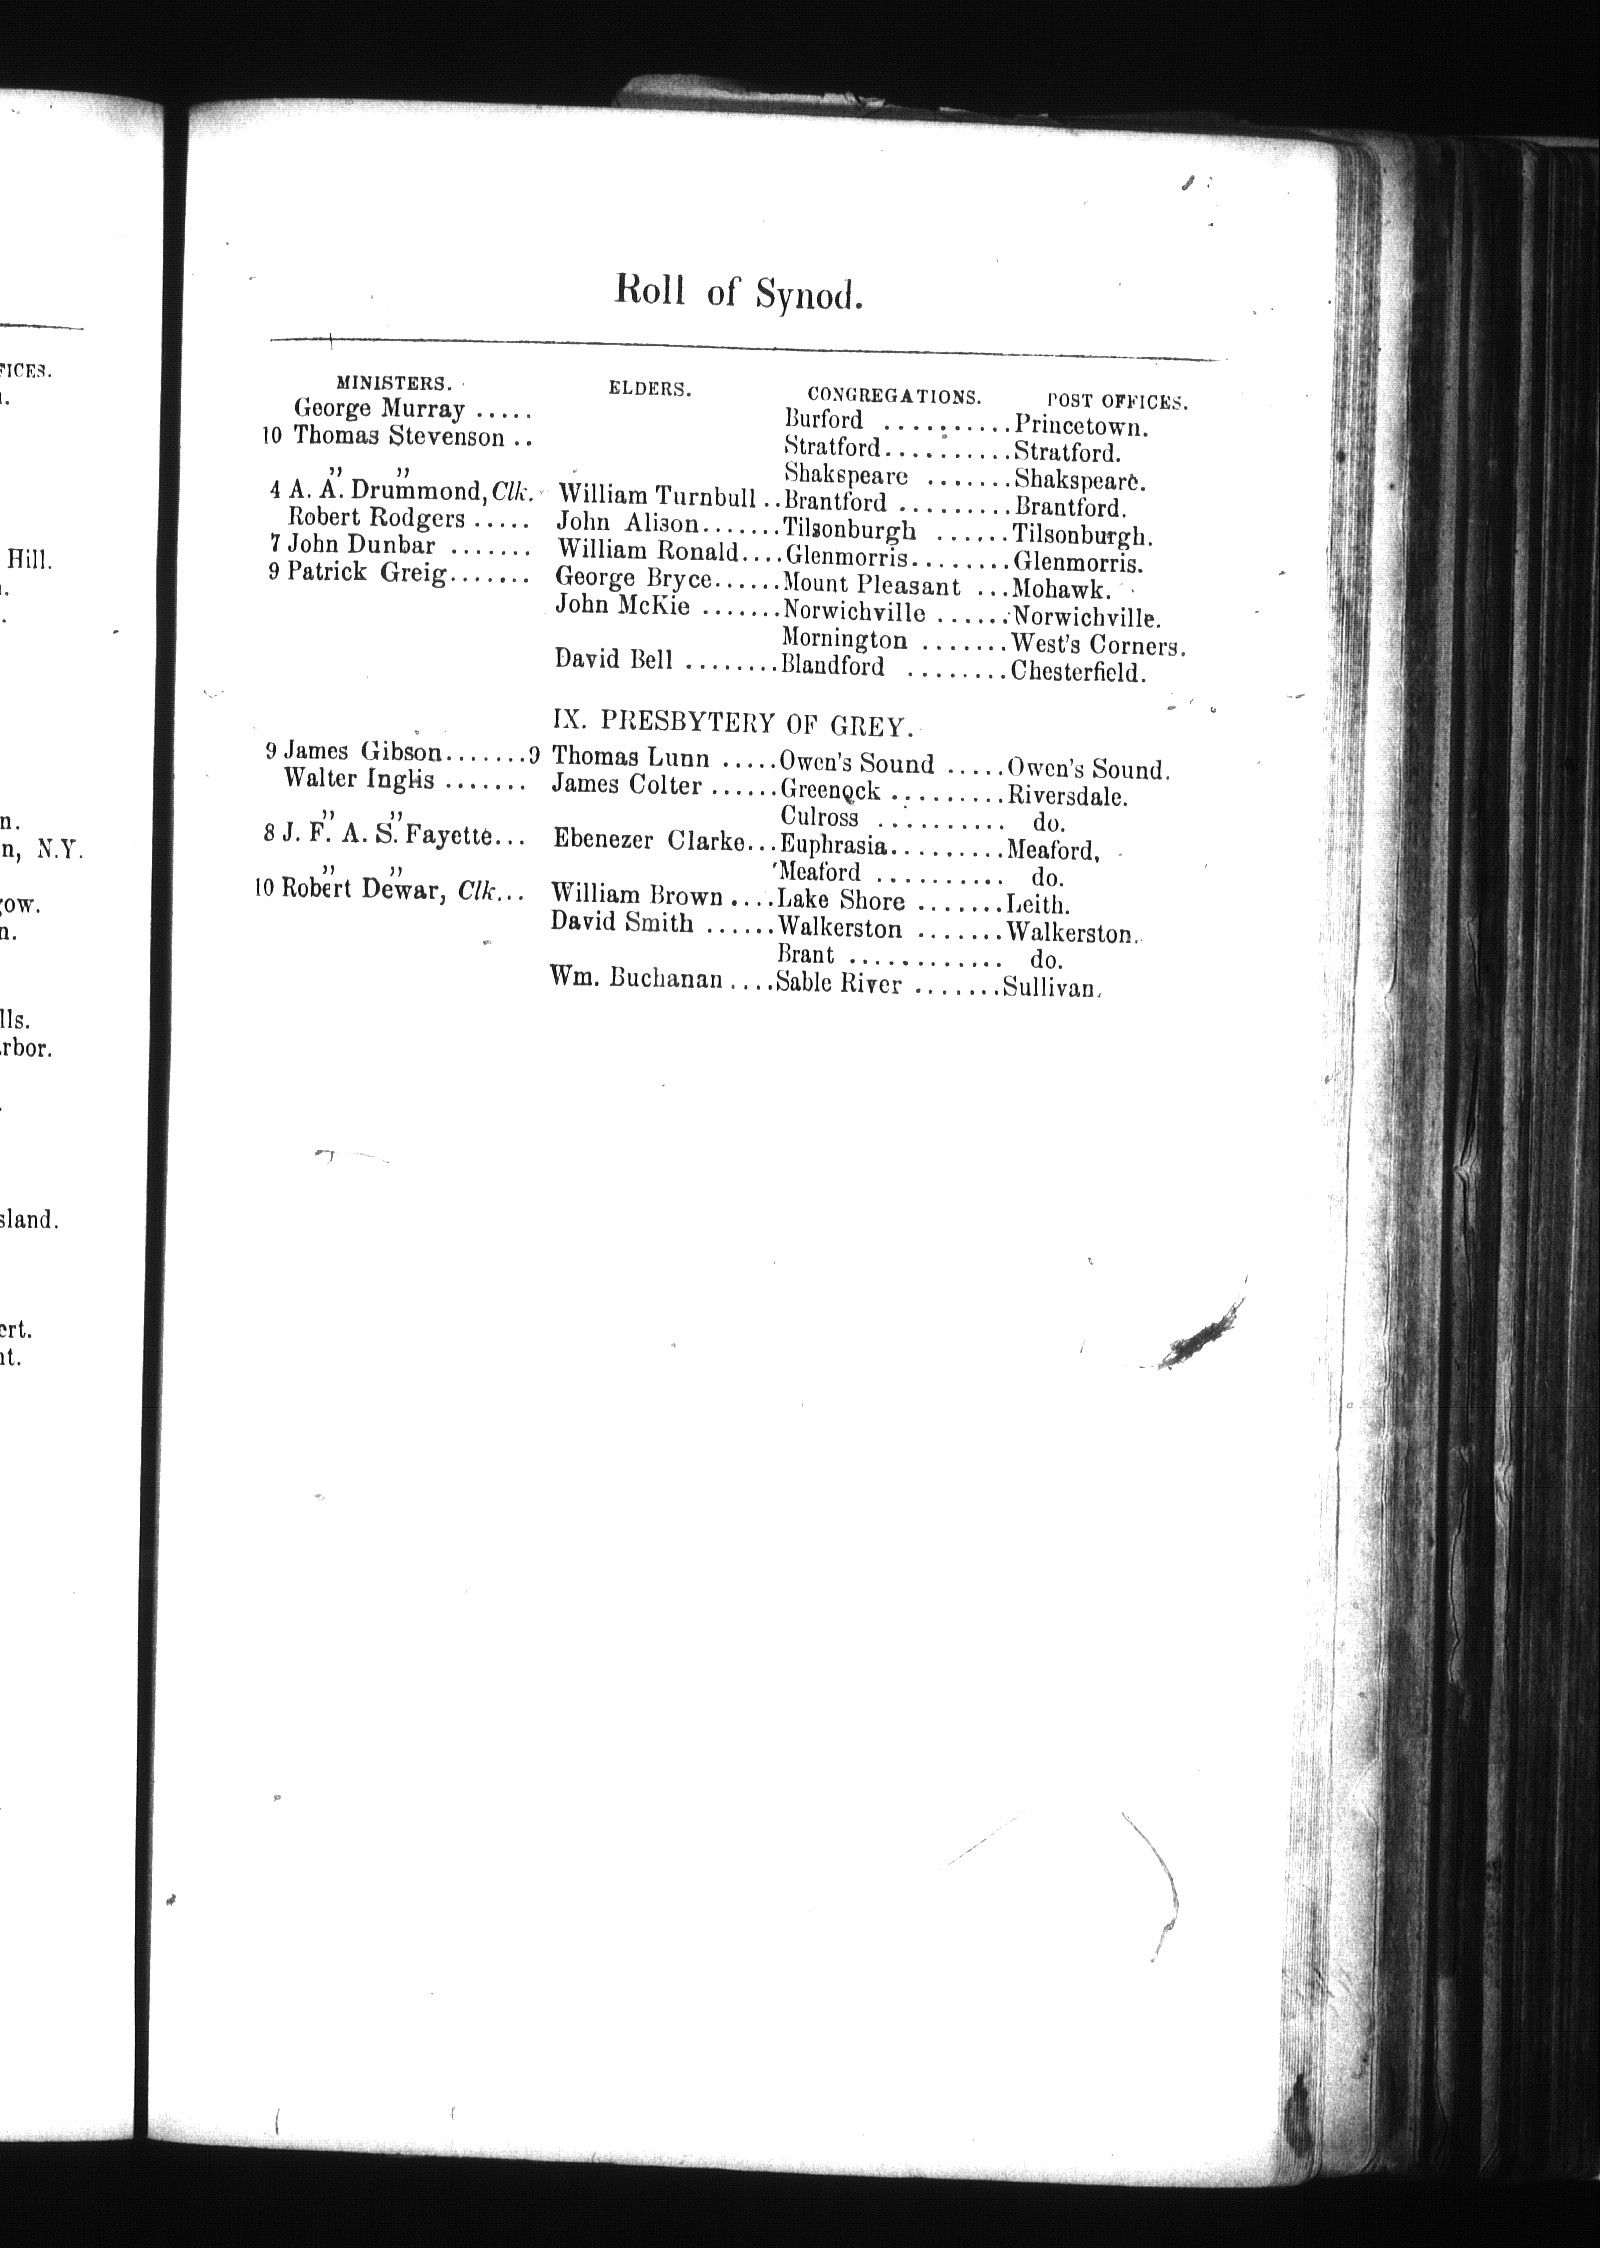 Roll of Synod.
MINISTERS. ELDERS. CONGREGATIONS. POST OFFICES.
George Murray ..... Burford .......... Princetown.
10 Thomas Stevenson .. Stratford.......... Stratford.
” ” Shakspeare ....... Shakspeare.
4 A. A. Drummond, Clk. William Turnbull .. Brantford ......... Brantford.
Robert Rodgers ..... John Alison....... Tilsonburgh ...... Tilsonburgh.
7 John Dunbar ....... William Ronald.... Glenmorris........ Glenmorris.
9 Patrick Greig....... George Bryce...... Mount Pleasant ... Mohawk.
John McKie ....... Norwichville ...... Norwichville.
Mornington ....... West's Corners.
David Bell ........ Blandford ........ Chesterfield.
IX. PRESBYTERY OF GREY.
9 James Gibson....... 9 Thomas Lunn ..... Owen's Sound ..... Owen's Sound.
Walter Inglis ....... James Colter ...... Greenock ......... Riversdale.
” ” Culross .......... do.
8 J. F. A. S. Fayette... Ebenezer Clarke... Euphrasia......... Meaford,
” ” Meaford .......... do.
10 Robert Dewar, Clk... William Brown .... Lake Shore ....... Leith.
David Smith ...... Walkerston ....... Walkerston.
Brant ............ do.
Wm. Buchanan .... Sable River ....... Sullivan.
FICES.
Hill.
n, N.Y.
ow.
lls.
rbor.
sland.
ert.